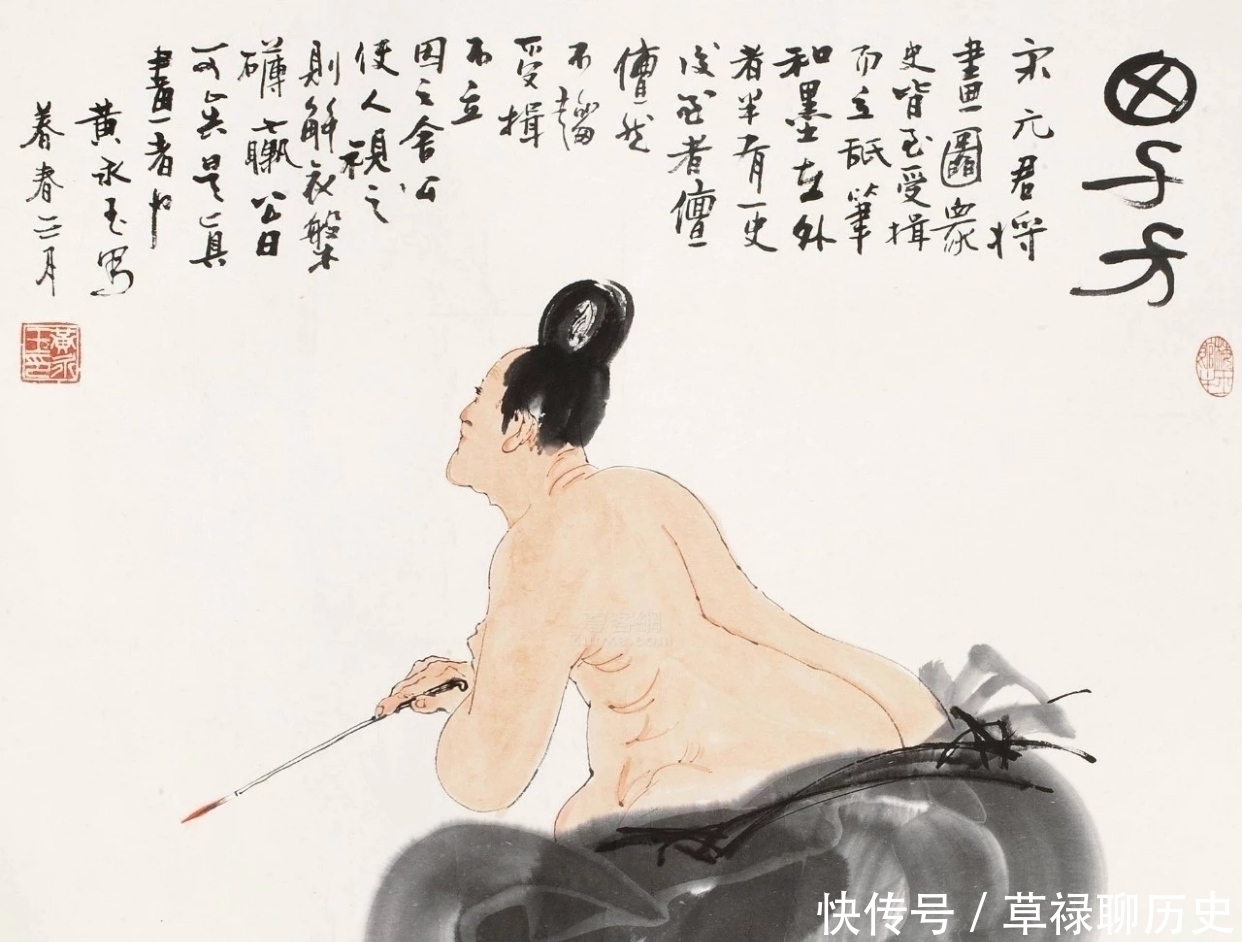 田子方
宋元君将
畫圖眾
史皆至受揖
而立舐筆
和墨在外
者半有一史
後至者儃
儃然
不趨
受揖
不立
因之舍公
使人視之
則解衣槃
礴臝公曰
可矣是真
畫者也
黃永玉寫
暮春三月
黃永玉印
快传号 / 草禄聊历史